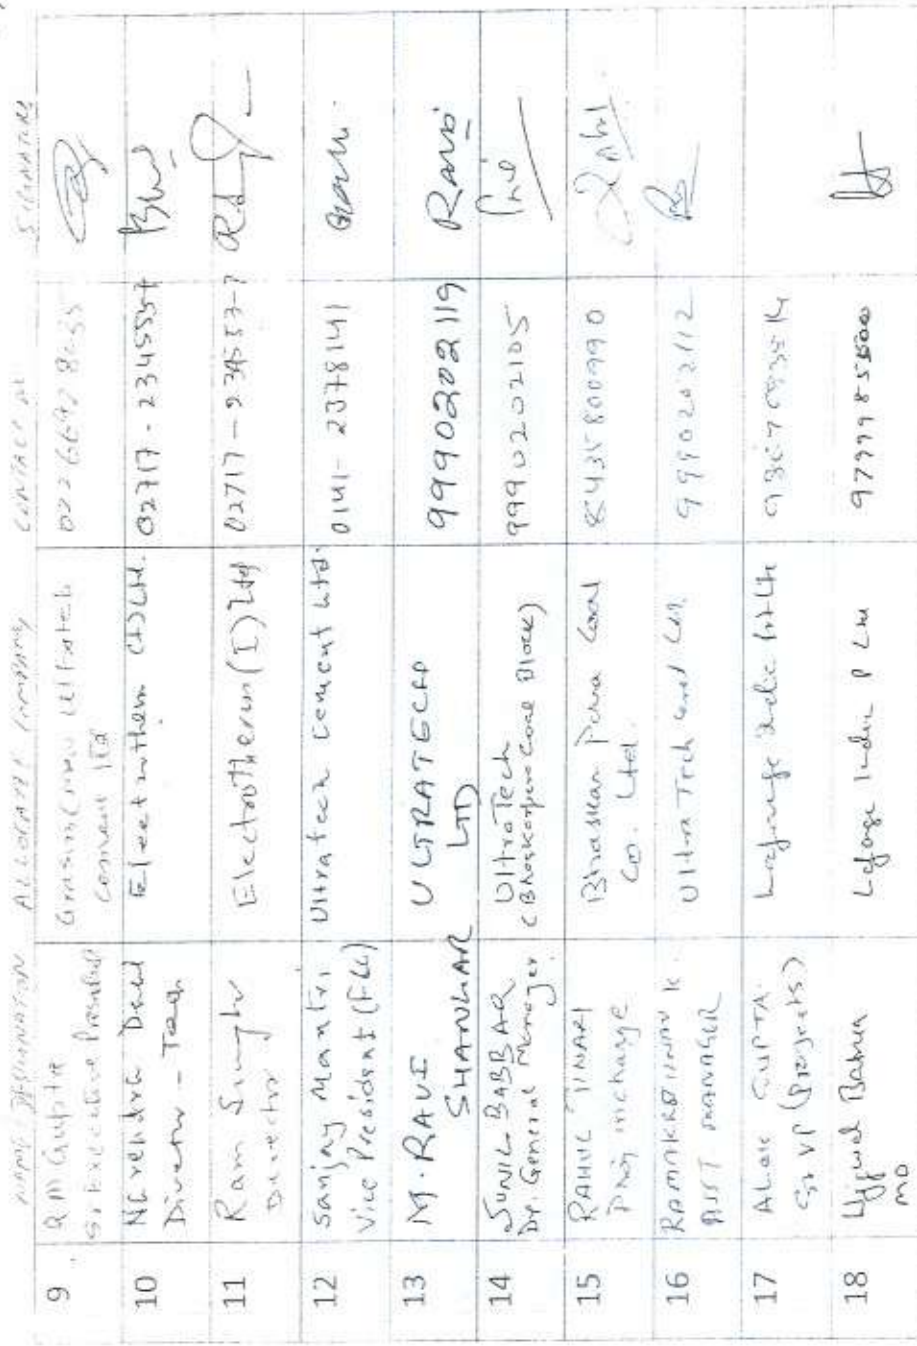 NAME/DESIGNATION ALLOCATEE COMPANY CONTACT NO SIGNATURE
9 R M Gupta
Sr. Executive President
Grasim (now Ultratech
Cement Ltd
10 Narendra Dalal
Director - Tech.
Electrotherm (I) Ltd.
02717 - 234553-7
11 Ram Singh
Director
Electrotherm (I) Ltd
02717 - 234553-7
12 Sanjay Mantri
Vice President (F&C)
Ultratech Cement Ltd.
0141 - 2378141
13 M. RAVI
SHANKAR
ULTRATECH
LTD
9990202119
Ravi
14 SUNIL BABBAR
Dy. General Manager
UltraTech
(Bhaskarpara Coal Block)
9990202105
15 RAHUL TIWARI
Proj incharge
Bhaskarpara Coal
Co. Ltd.
8435800990
16 RAMAKRISHNAN K.
ASST MANAGER
UltraTech Cement Ltd.
9990202112
17 ALOK GUPTA
Sr VP (Projects)
Lafarge India Pvt Ltd
18 Ujjwal Batria
MD
Lafarge India P Ltd